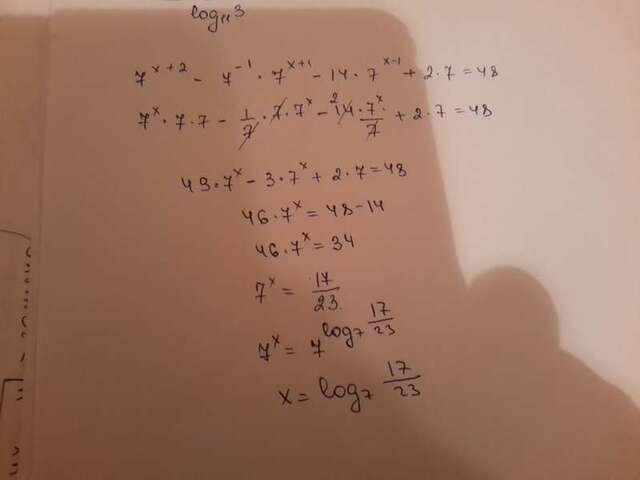 log₁₁3
7^(x+2) - 7^(-1) · 7^(x+1) - 14 · 7^(x-1) + 2 · 7 = 48
7^x · 7 · 7 - 1/7 · 7 · 7^x - 14 2 · 7^x/7 + 2 · 7 = 48
49 · 7^x - 3 · 7^x + 2 · 7 = 48
46 · 7^x = 48 - 14
46 · 7^x = 34
7^x = 17/23
7^x = 7^(log₇ 17/23)
x = log₇ 17/23